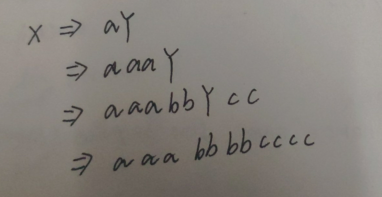 X ⇒ aY
⇒ aaaY
⇒ aaabbYcc
⇒ aaa bbbbcccc